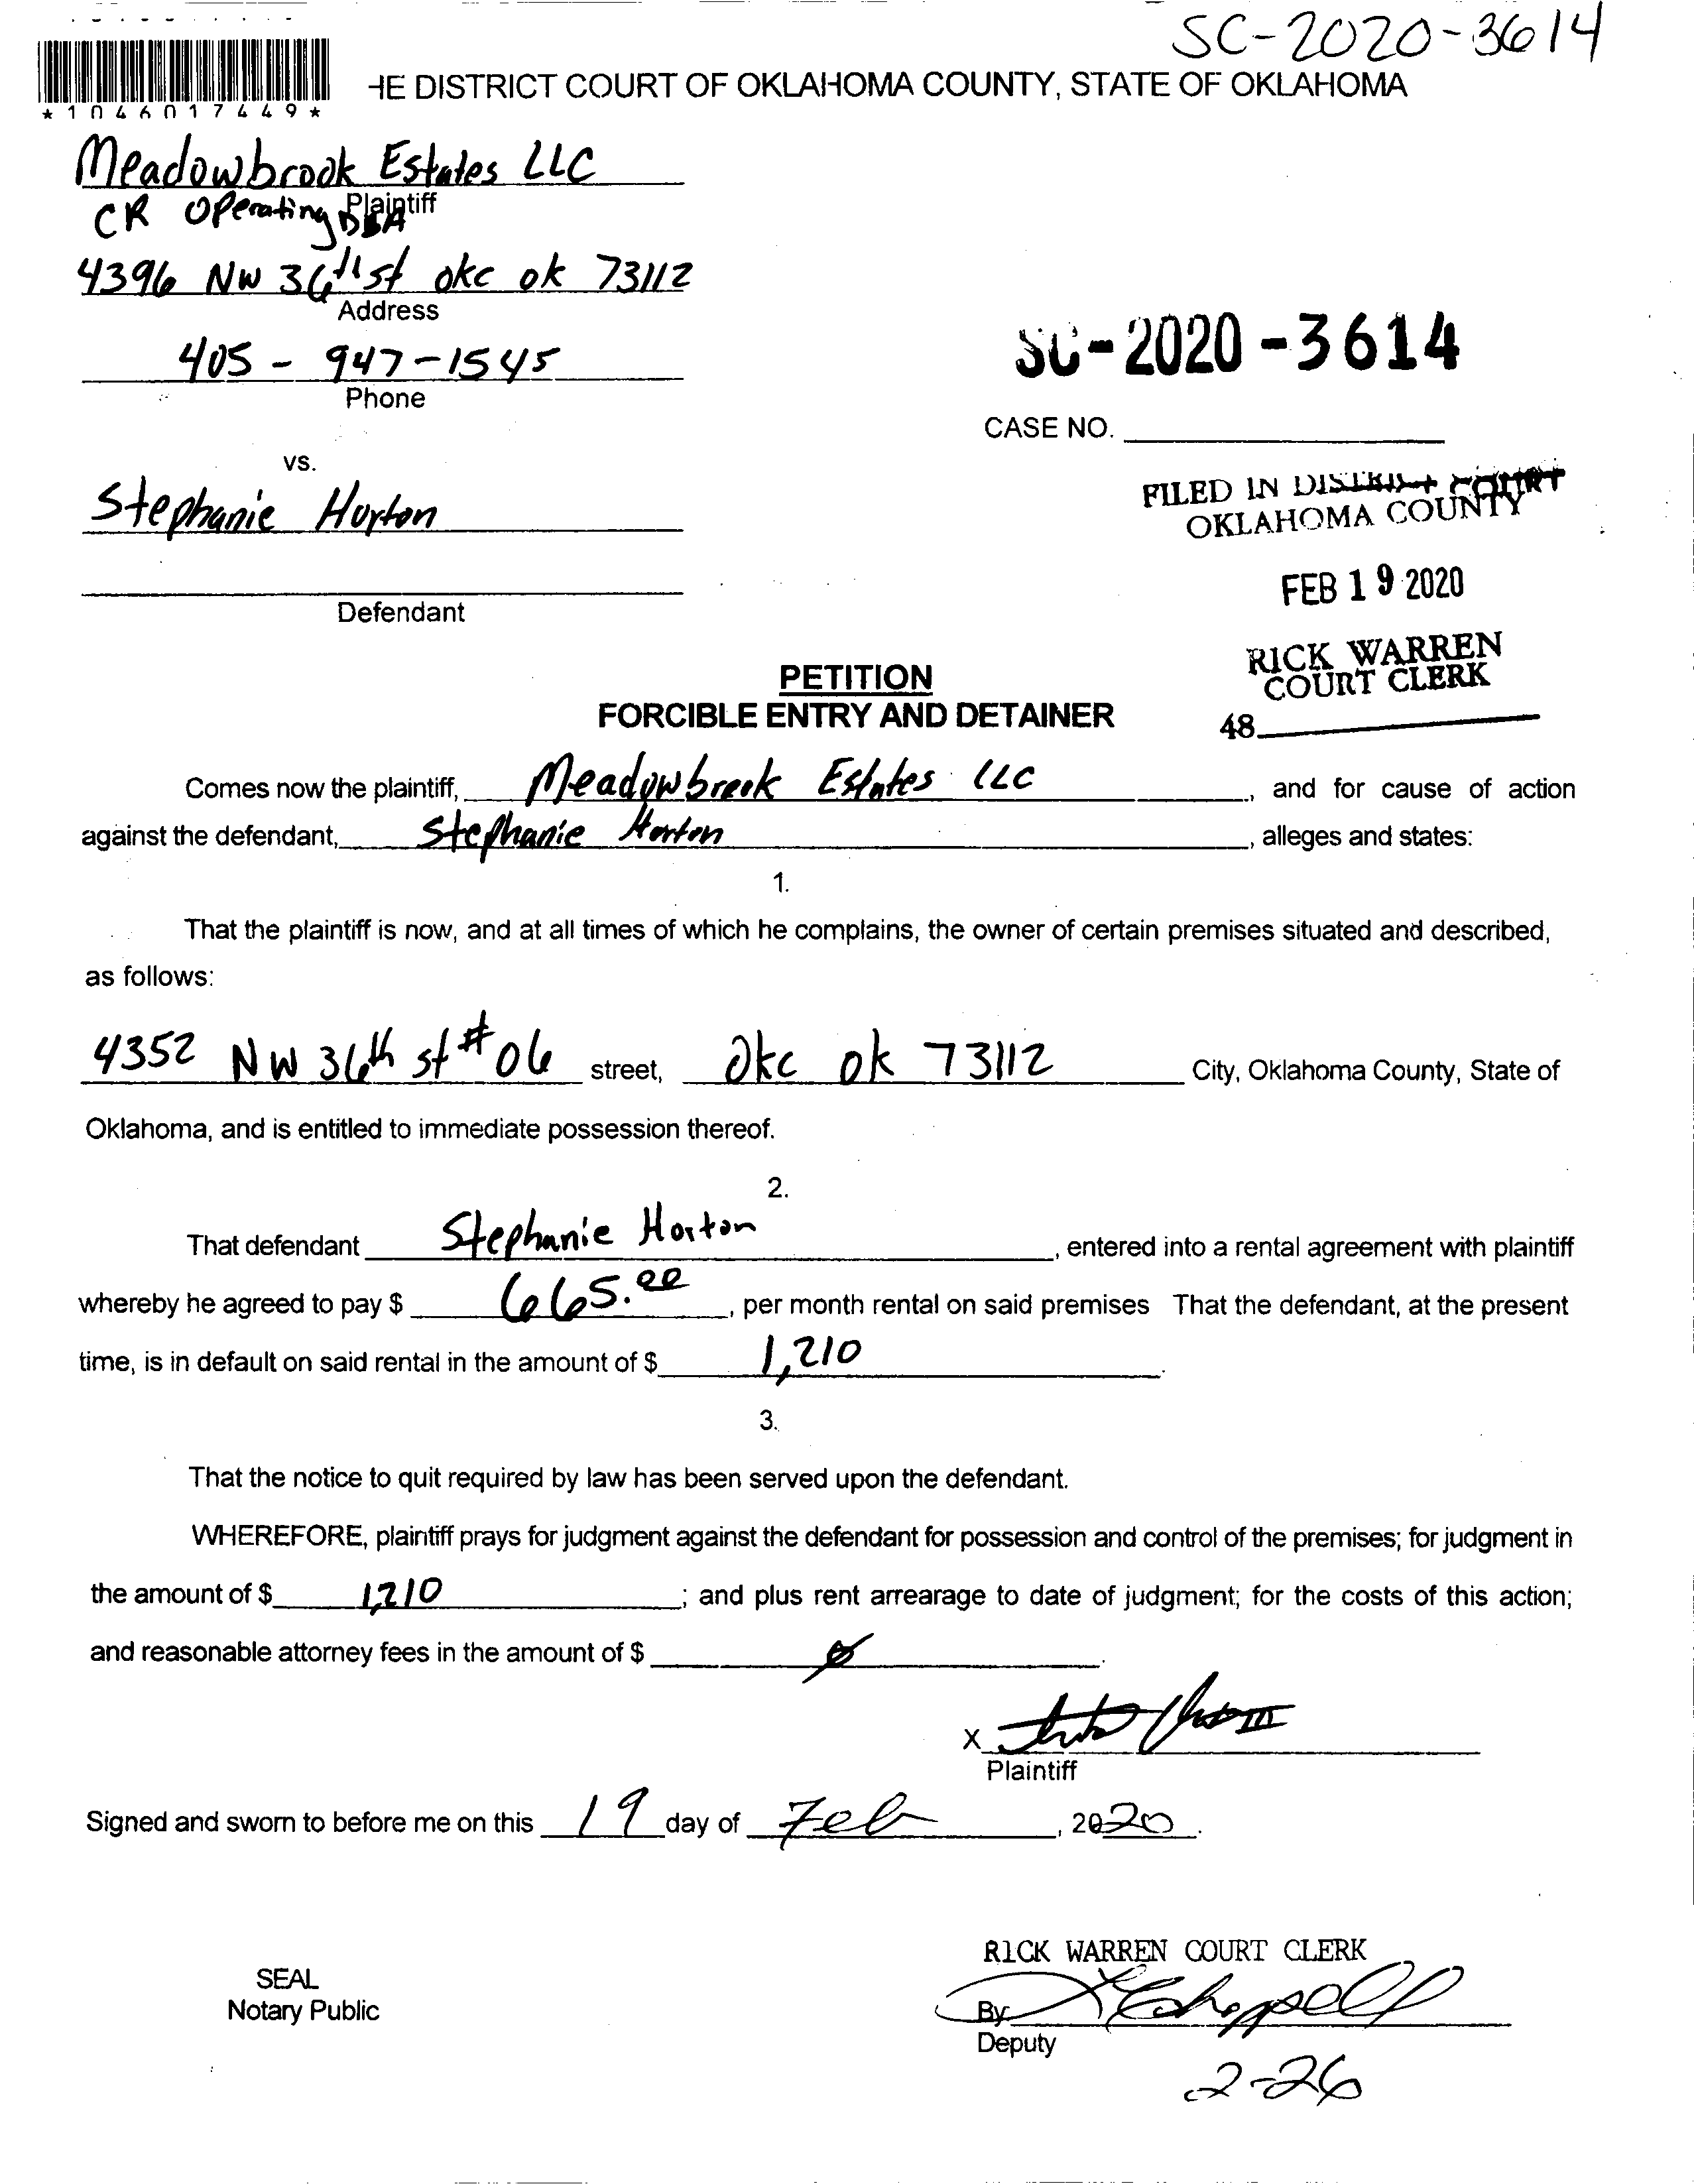 SC-2020-3614
HE DISTRICT COURT OF OKLAHOMA COUNTY, STATE OF OKLAHOMA
*1046017449*
Meadowbrook Estates LLC
Plaintiff
CR Operating DBA
4396 NW 36th st okc ok 73112
Address
405-947-1545
Phone
SC-2020-3614
CASE NO.
vs.
Stephanie Horton
Defendant
FILED IN DISTRICT COURT
OKLAHOMA COUNTY
FEB 19 2020
RICK WARREN
COURT CLERK
48
PETITION
FORCIBLE ENTRY AND DETAINER
Comes now the plaintiff, Meadowbrook Estates LLC, and for cause of action
against the defendant, Stephanie Horton, alleges and states:
1.
That the plaintiff is now, and at all times of which he complains, the owner of certain premises situated and described,
as follows:
4352 NW 36th st #06 street, okc ok 73112 City, Oklahoma County, State of
Oklahoma, and is entitled to immediate possession thereof.
2.
That defendant Stephanie Horton, entered into a rental agreement with plaintiff
whereby he agreed to pay $ 665.00, per month rental on said premises That the defendant, at the present
time, is in default on said rental in the amount of $ 1,210.
3.
That the notice to quit required by law has been served upon the defendant.
WHEREFORE, plaintiff prays for judgment against the defendant for possession and control of the premises; for judgment in
the amount of $ 1,210; and plus rent arrearage to date of judgment; for the costs of this action;
and reasonable attorney fees in the amount of $ Ø.
X
Plaintiff
Signed and sworn to before me on this 19 day of Feb, 2020.
RICK WARREN COURT CLERK
SEAL
Notary Public
By
Deputy
2-26